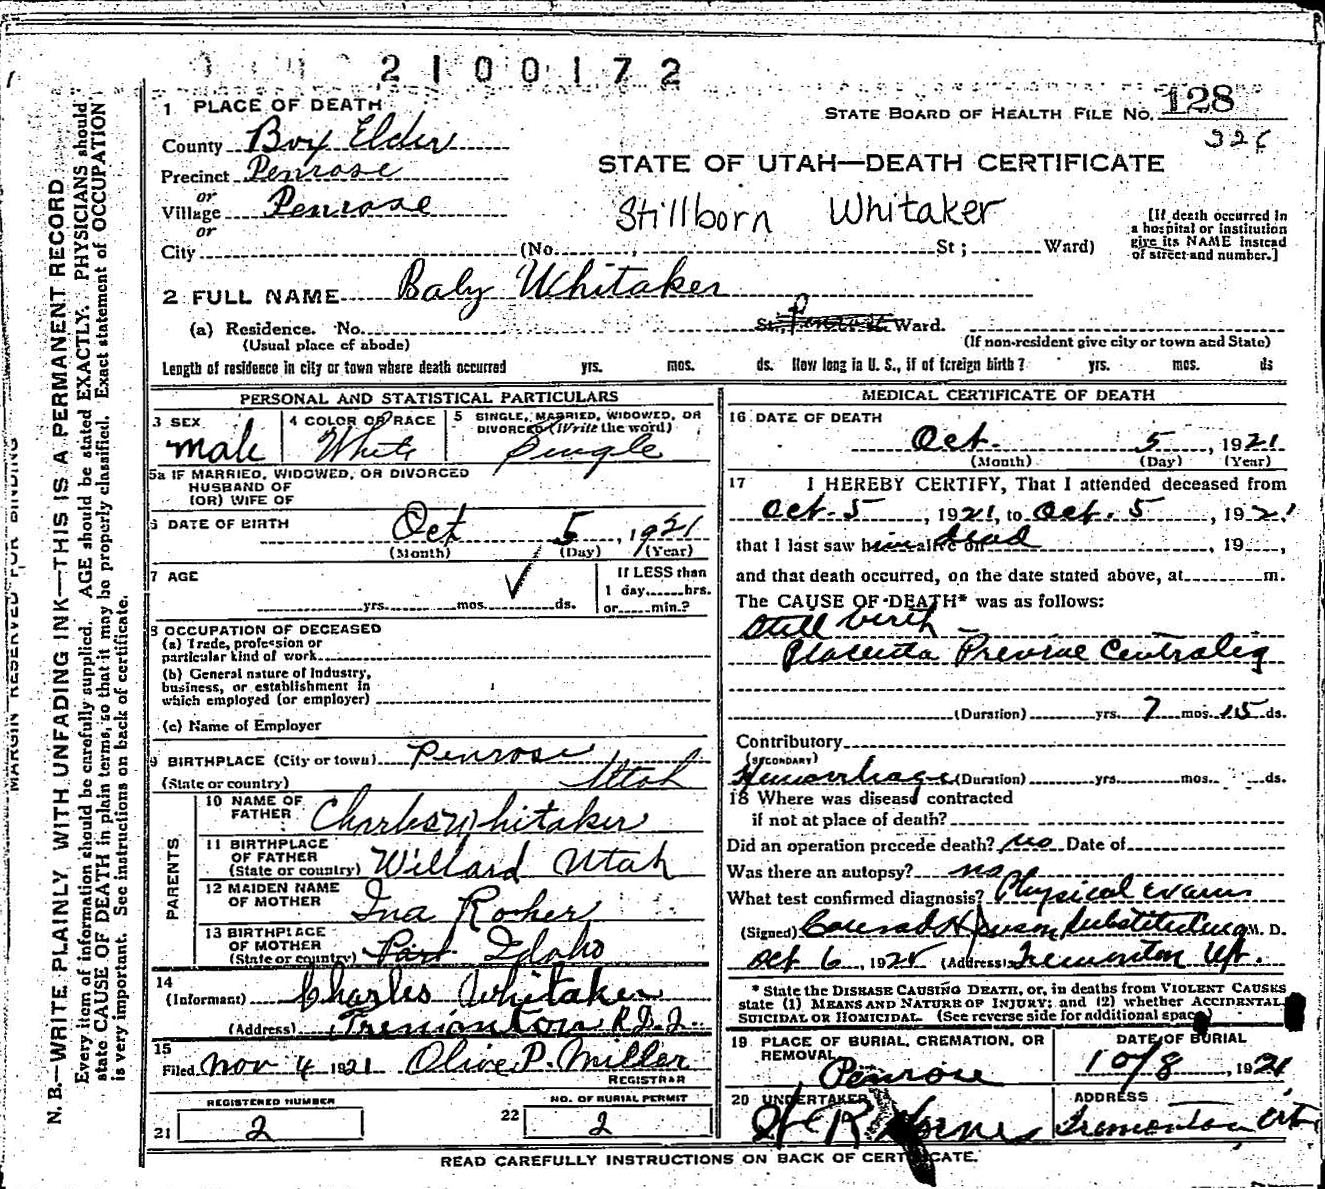 2100172
1 PLACE OF DEATH
STATE BOARD OF HEALTH FILE NO. 128
326
County Box Elder
STATE OF UTAH—DEATH CERTIFICATE
Precinct Penrose
or
Village Penrose
or
Stillborn Whitaker
[If death occurred in a hospital or institution give its NAME instead of street and number.]
City (No. , St ; Ward)
2 FULL NAME Baby Whitaker
(a) Residence. No. St. Penrose Ward.
(Usual place of abode) (If non-resident give city or town and State)
Length of residence in city or town where death occurred yrs. mos. ds. How long in U. S., if of foreign birth? yrs. mos. ds
PERSONAL AND STATISTICAL PARTICULARS
3 SEX
male
4 COLOR OR RACE
White
5 SINGLE, MARRIED, WIDOWED, OR DIVORCED (Write the word)
Single
5a IF MARRIED, WIDOWED, OR DIVORCED
HUSBAND OF
(OR) WIFE OF
6 DATE OF BIRTH Oct 5, 1921
(Month) (Day) (Year)
7 AGE
yrs. mos. ds.
If LESS than
1 day hrs.
or min.?
8 OCCUPATION OF DECEASED
(a) Trade, profession or
particular kind of work
(b) General nature of Industry,
business, or establishment in
which employed (or employer)
(c) Name of Employer
9 BIRTHPLACE (City or town) Penrose
(State or country) Utah
PARENTS
10 NAME OF
FATHER Charles Whitaker
11 BIRTHPLACE
OF FATHER
(State or country) Willard Utah
12 MAIDEN NAME
OF MOTHER Ina
13 BIRTHPLACE
OF MOTHER
(State or country) Idaho
14
(Informant) Charles Whitaker
(Address) Tremonton R.D.2
15
Filed Nov 4 1921 Olive P. Miller
REGISTRAR
REGISTERED NUMBER
21 2
NO. OF BURIAL PERMIT
22 2
MEDICAL CERTIFICATE OF DEATH
16 DATE OF DEATH
Oct. 5, 1921
(Month) (Day) (Year)
17 I HEREBY CERTIFY, That I attended deceased from
Oct. 5, 1921, to Oct. 5, 1921
that I last saw him alive on dead, 19 ,
and that death occurred, on the date stated above, at m.
The CAUSE OF DEATH* was as follows:
Still birth
Placenta Previae Centralis
(Duration) yrs. 7 mos. 15 ds.
Contributory
(SECONDARY)
Hemorrhage (Duration) yrs. mos. ds.
18 Where was disease contracted
if not at place of death?
Did an operation precede death? no Date of
Was there an autopsy? no
What test confirmed diagnosis? Physical exam
(Signed) Conrad H Jenson substituting M. D.
Oct 6, 192 (Address) Tremonton Ut.
* State the DISEASE CAUSING DEATH, or, in deaths from VIOLENT CAUSES
state (1) MEANS AND NATURE OF INJURY; and (2) whether ACCIDENTAL
SUICIDAL OR HOMICIDAL. (See reverse side for additional space)
19 PLACE OF BURIAL, CREMATION, OR
REMOVAL
Penrose
DATE OF BURIAL
10/8, 1921
20 UNDERTAKER
ADDRESS
Tremonton
READ CAREFULLY INSTRUCTIONS ON BACK OF CERTIFICATE.
MARGIN RESERVED FOR BINDING
N. B.—WRITE PLAINLY, WITH UNFADING INK—THIS IS A PERMANENT RECORD
Every item of information should be carefully supplied. AGE should be stated EXACTLY. PHYSICIANS should
state CAUSE OF DEATH in plain terms, so that it may be properly classified. Exact statement of OCCUPATION
is very important. See instructions on back of certificate.